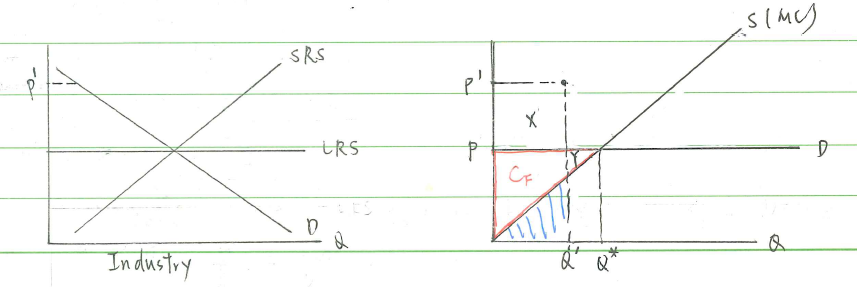 P'
SRS
LRS
D
Q
Industry
S(MC)
P'
X
P
Y
D
CF
Q'
Q*
Q